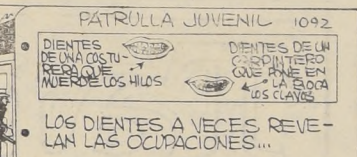 PATRULLA JUVENIL 1092
DIENTES
DE UNA COSTU-
RERA QUE
MUERDE LOS HILOS
DIENTES DE UN
CARPINTERO
QUE PONE EN
LA BOCA
LOS CLAVOS
LOS DIENTES A VECES REVE-
LAN LAS OCUPACIONES...